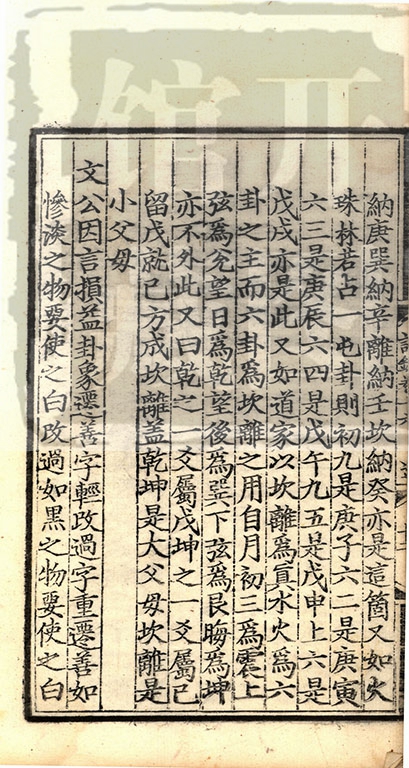 納庚巽納辛離納壬坎納癸亦是這箇又如火
珠林若占一屯卦則初九是庚子六二是庚寅
六三是庚辰六四是戊午九五是戊申上六是
戊戌亦是此又如道家以坎離為真水火為六
卦之主而六卦為坎離之用自月初三為震上
弦為兌望日為乾望後為巽下弦為艮晦為坤
亦不外此又曰乾之一爻屬戊坤之一爻屬己
留戊就己方成坎離蓋乾坤是大父母坎離是
小父母
文公因言損益卦象遷善字輕改過字重遷善如
慘淡之物要使之白改過如黑之物要使之白